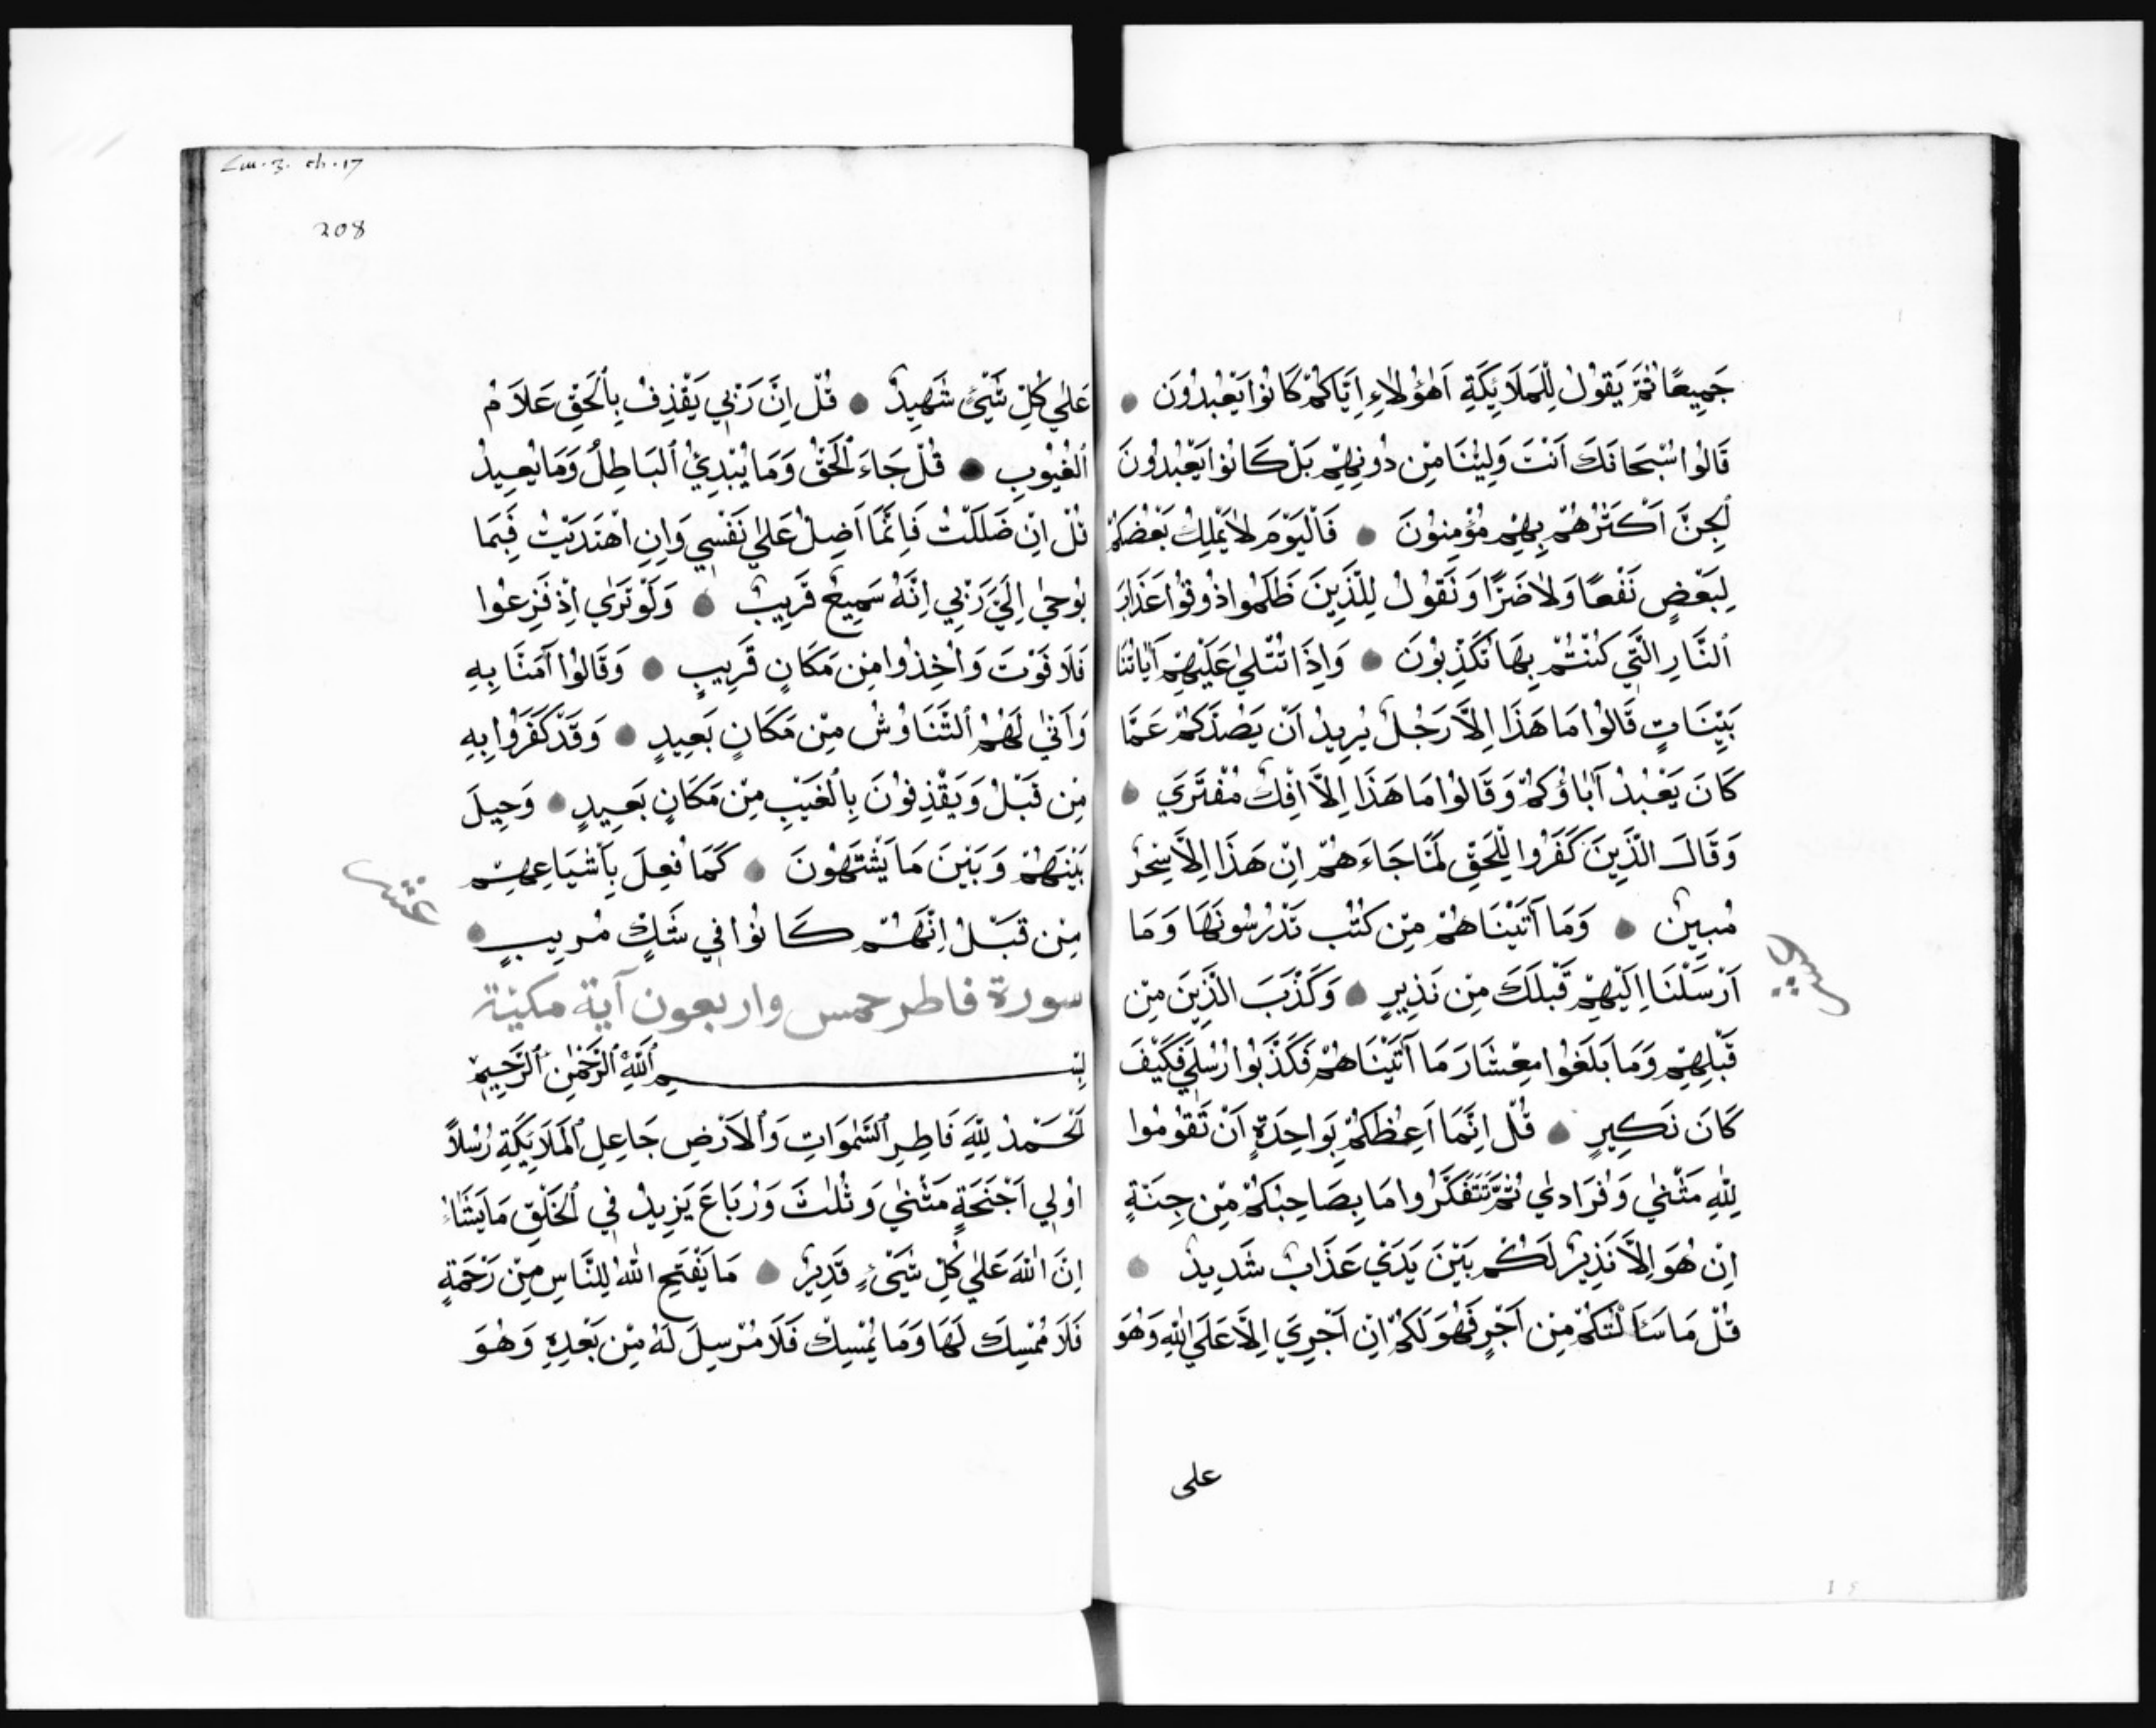 جَمِيعًا ثُمَّ يَقُولُ لِلْمَلَائِكَةِ اَهٰؤُلَاءِ اِيَّاكُمْ كَانُوا يَعْبُدُونَ
قَالُوا سُبْحَانَكَ اَنْتَ وَلِيُّنَا مِنْ دُونِهِمْ بَلْ كَانُوا يَعْبُدُونَ
ٱلْجِنَّ اَكْثَرُهُمْ بِهِمْ مُؤْمِنُونَ فَالْيَوْمَ لَا يَمْلِكُ بَعْضُكُمْ
لِبَعْضٍ نَفْعًا وَلَا ضَرًّا وَنَقُولُ لِلَّذِينَ ظَلَمُوا ذُوقُوا عَذَابَ
ٱلنَّارِ الَّتِي كُنْتُمْ بِهَا تُكَذِّبُونَ وَاِذَا تُتْلٰي عَلَيْهِمْ آيَاتُنَا
بَيِّنَاتٍ قَالُوا مَا هَذَا اِلَّا رَجُلٌ يُرِيدُ اَنْ يَصُدَّكُمْ عَمَّا
كَانَ يَعْبُدُ آبَاؤُكُمْ وَقَالُوا مَا هَذَا اِلَّا اِفْكٌ مُفْتَرَي
وَقَالَ الَّذِينَ كَفَرُوا لِلْحَقِّ لَمَّا جَاءَهُمْ اِنْ هَذَا اِلَّا سِحْرٌ
مُبِينٌ وَمَا آتَيْنَاهُمْ مِنْ كُتُبٍ تَدْرُسُونَهَا وَمَا
اَرْسَلْنَا اِلَيْهِمْ قَبْلَكَ مِنْ نَذِيرٍ وَكَذَّبَ الَّذِينَ مِنْ
قَبْلِهِمْ وَمَا بَلَغُوا مِعْشَارَ مَا آتَيْنَاهُمْ فَكَذَّبُوا رُسُلِي فَكَيْفَ
كَانَ نَكِيرِ قُلْ اِنَّمَا اَعِظُكُمْ بِوَاحِدَةٍ اَنْ تَقُومُوا
لِلّٰهِ مَثْنٰي وَفُرَادٰي ثُمَّ تَتَفَكَّرُوا مَا بِصَاحِبِكُمْ مِنْ جِنَّةٍ
اِنْ هُوَ اِلَّا نَذِيرٌ لَكُمْ بَيْنَ يَدَيْ عَذَابٍ شَدِيدٍ
قُلْ مَا سَاَلْتُكُمْ مِنْ اَجْرٍ فَهُوَ لَكُمْ اِنْ اَجْرِيَ اِلَّا عَلَي اللّٰهِ وَهُوَ
علي
208
عَلٰي كُلِّ شَيْئٍ شَهِيدٌ قُلْ اِنَّ رَبِّي يَقْذِفُ بِٱلْحَقِّ عَلَّامُ
ٱلْغُيُوبِ قُلْ جَاءَ ٱلْحَقُّ وَمَا يُبْدِئُ ٱلْبَاطِلُ وَمَا يُعِيدُ
قُلْ اِنْ ضَلَلْتُ فَاِنَّمَا اَضِلُّ عَلٰي نَفْسِي وَاِنِ اهْتَدَيْتُ فَبِمَا
يُوحٰي اِلَيَّ رَبِّي اِنَّهُ سَمِيعٌ قَرِيبٌ وَلَوْ تَرٰي اِذْ فَزِعُوا
فَلَا فَوْتَ وَاُخِذُوا مِنْ مَكَانٍ قَرِيبٍ وَقَالُوا آمَنَّا بِهِ
وَاَنّٰي لَهُمُ ٱلتَّنَاوُشُ مِنْ مَكَانٍ بَعِيدٍ وَقَدْ كَفَرُوا بِهِ
مِنْ قَبْلُ وَيَقْذِفُونَ بِالْغَيْبِ مِنْ مَكَانٍ بَعِيدٍ وَحِيلَ
بَيْنَهُمْ وَبَيْنَ مَا يَشْتَهُونَ كَمَا فُعِلَ بِاَشْيَاعِهِمْ
عشر
مِنْ قَبْلُ اِنَّهُمْ كَانُوا فِي شَكٍّ مُرِيبٍ
سورة فاطر خمس واربعون آية مكية
بِسْمِ ٱللّٰهِ ٱلرَّحْمٰنِ ٱلرَّحِيمِ
اَلْحَمْدُ لِلّٰهِ فَاطِرِ ٱلسَّمٰوَاتِ وَٱلْاَرْضِ جَاعِلِ ٱلْمَلَائِكَةِ رُسُلًا
اُولِي اَجْنِحَةٍ مَثْنٰي وَثُلٰثَ وَرُبَاعَ يَزِيدُ فِي ٱلْخَلْقِ مَا يَشَاءُ
اِنَّ اللّٰهَ عَلٰي كُلِّ شَيْءٍ قَدِيرٌ مَا يَفْتَحِ اللّٰهُ لِلنَّاسِ مِنْ رَحْمَةٍ
فَلَا مُمْسِكَ لَهَا وَمَا يُمْسِكْ فَلَا مُرْسِلَ لَهُ مِنْ بَعْدِهِ وَهُوَ